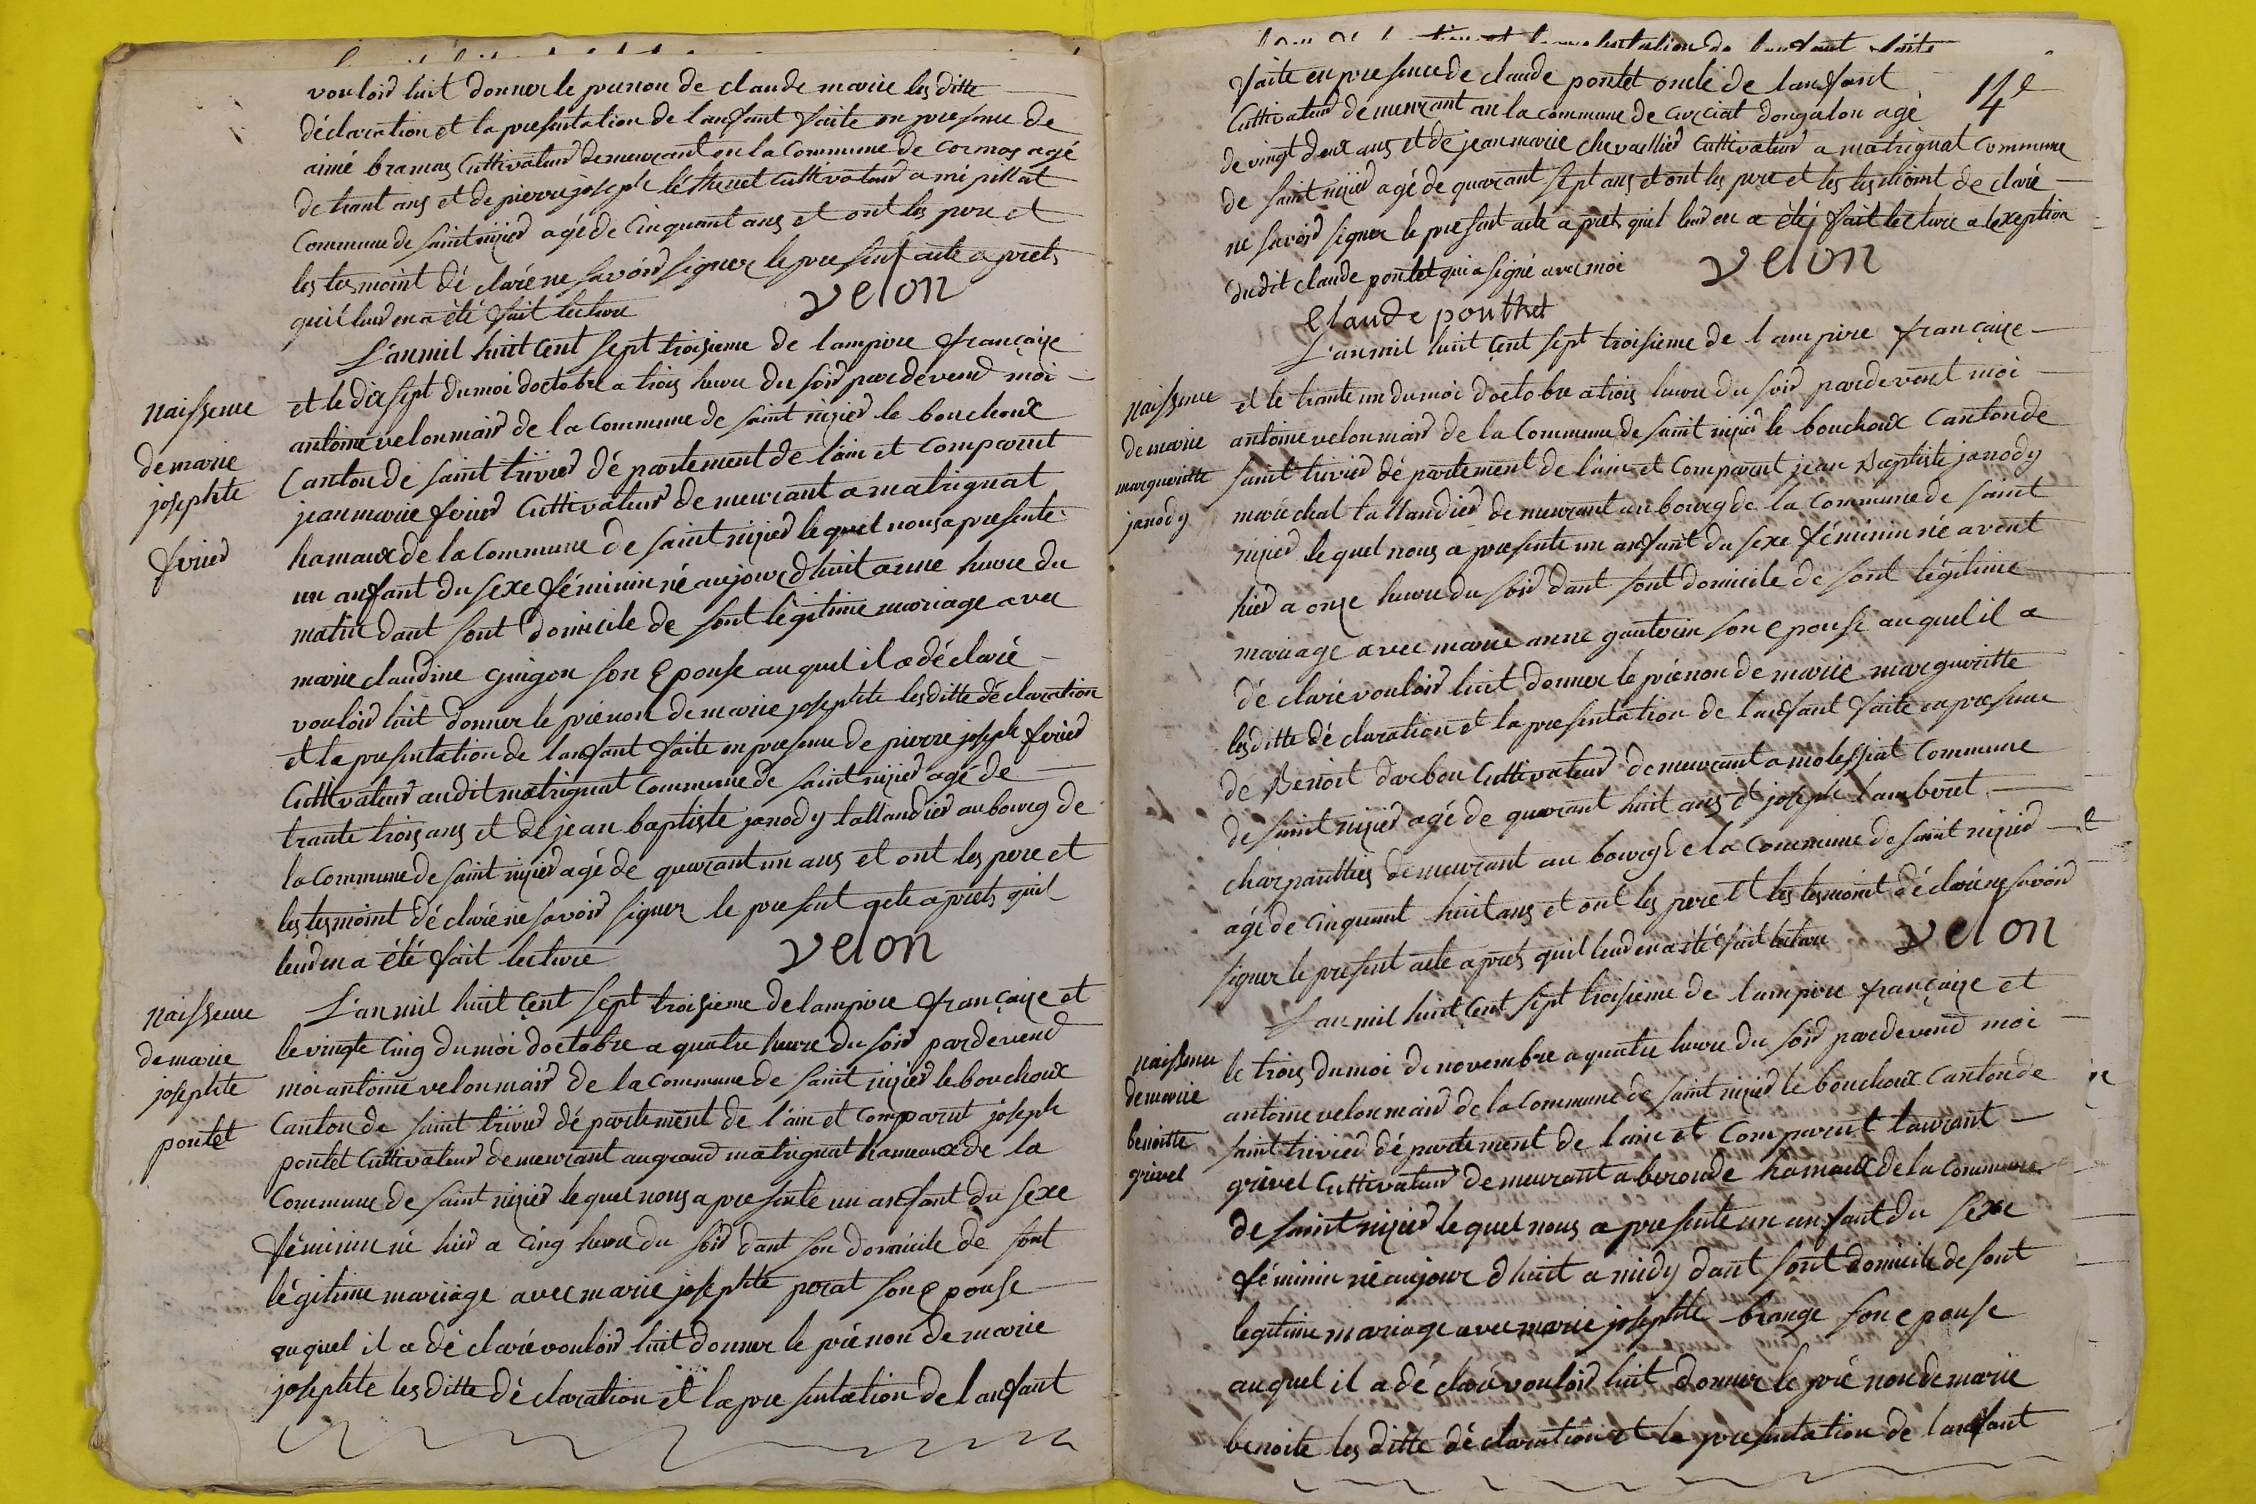 vouloir luit donner le prenon de claude marie les ditte
déclaration et la presentation de lanfant faite en presence de
aimé bramas Cultivateur demeurant en la Commune de Cormos agé
de trant ans et de pierre joseph Cultivateur a mépillat
Commune de saint nizier agé de Cinquant ans et ont les pere et
les tesmoint dé claré ne savoir signer le present acte a prets
quil leur en a été fait lecture velon
L'an mil huit cent sept troisieme de lampire française
Naissence
de marie
josephte
ferier
et le dix sept du moi doctobre a trois heure du soir par devend moi
antoine velon mair de la Commune de saint nizier le bouchoux
Canton de saint trivier dé partement de lain et Comparent
jean marie ferier Cultivateur demeurant a matrignat
hamaux de la Commune de saint nizier le quel nous a presenté
un anfant du sexe féminin né aujourdhuit a une heure du
matin dant sont domicile de sont légitime mariage avec
marie claudine guigon son Epouse au quel il a déclaré
vouloir luit donner le prénon de marie josephte les ditte déclaration
et la presentation de lanfant faite en presence de pierre joseph ferier
Cultivateur au dit matrignat Commune de saint nizier agé de
trante trois ans et de jean baptiste janody tallandier au bourg de
la Commune de saint nizier agé de quarant un ans et ont les pere et
les tesmoint déclaré ne savoir signer le present acte a prets quil
leur en a été fait lecture velon
Naissence
de marie
josephte
pontet
L'an mil huit cent sept troisieme de lampire française et
le vingte cinq du moi doctobre a quatre heure du soir par devend
moi antoine velon mair de la Commune de saint nizier le bouchoux
Canton de saint trivier dé partement de l'ain et Comparut joseph
pontet Cultivateur demeurant au grand matrignat hameaux de la
Commune de saint nizier le quel nous a presente un anfant du sexe
féminin né hier a cinq heure du soir dant son domicile de sont
légitime mariage avec marie josephte porat son Epouse
au quel il a dé claré vouloir luit donner le prénon de marie
josephte les ditte dé claration et la presentation de lanfant
14e
faite en presence de claude pontet oncle de lanfant
Cultivateur demeurant an la commune de curciat dongalon agé
de vingt deux ans et de jean marie chevaillier Cultivateur a matrignat Commune
de saint nizier agé de quarant sept ans et ont les pere et les tesmoint de claré
ne savoir signer le present acte a prets quil leur en a été fait lecture a lexeption
du dit claude pontet qui a signé avec moi velon
Claude ponthet
L'an mil huit cent sept troisieme de lampire française
Naissence
de marie
margueritte
janody
et le trante un du moi doctobre a trois heure du soir par devent moi
antoine velon mair de la Commune de saint nizier le bouchoux Canton de
saint trivier dé partement de l'ain et Comparent jean Baptiste janody
maréchal tallandier demeurant au bourg de la Commune de saint
nizier le quel nous a presente un anfant du sexe féminin né avent
hier a onze heure du soir dant sont domicile de sont légitime
mariage avec marie anne gauterin son epouse au quel il a
déclaré vouloir luit donner le prénon de marie margueritte
les ditte dé claration et la presentation de lanfant faite en presence
de Benoit darbon Cultivateur demeurant a molessiat Commune
de saint nizier agé de quarant huit ans et joseph lamberet
charpanttier demeurant au bourg de la Commune de saint nizier
agé de Cinquant huit ans et ont les pere et les tesmoint dé claré ne savoir
signer le present acte a prets quil leur en a été fait lecture velon
L'an mil huit cent sept troisieme de lampire française et
Naissence
de marie
benoitte
grivel
le trois du moi de novembre a quatre heure du soir par devend moi
antoine velon mair de la Commune de saint nizier le bouchoux Canton de
saint trivier dé partement de lain et Comparut laurant
grivel Cultivateur demeurant a beronde hamaux de la Commune
de saint nizier le quel nous a presente un anfant du sexe
féminin né aujour d huit a midy dant sont domicile de sont
legitime mariage avec marie josephte brange son epouse
au quel il a dé claré vouloir luit donner le pré non de marie
benoite les ditte dé claration et la presentation de lanfant